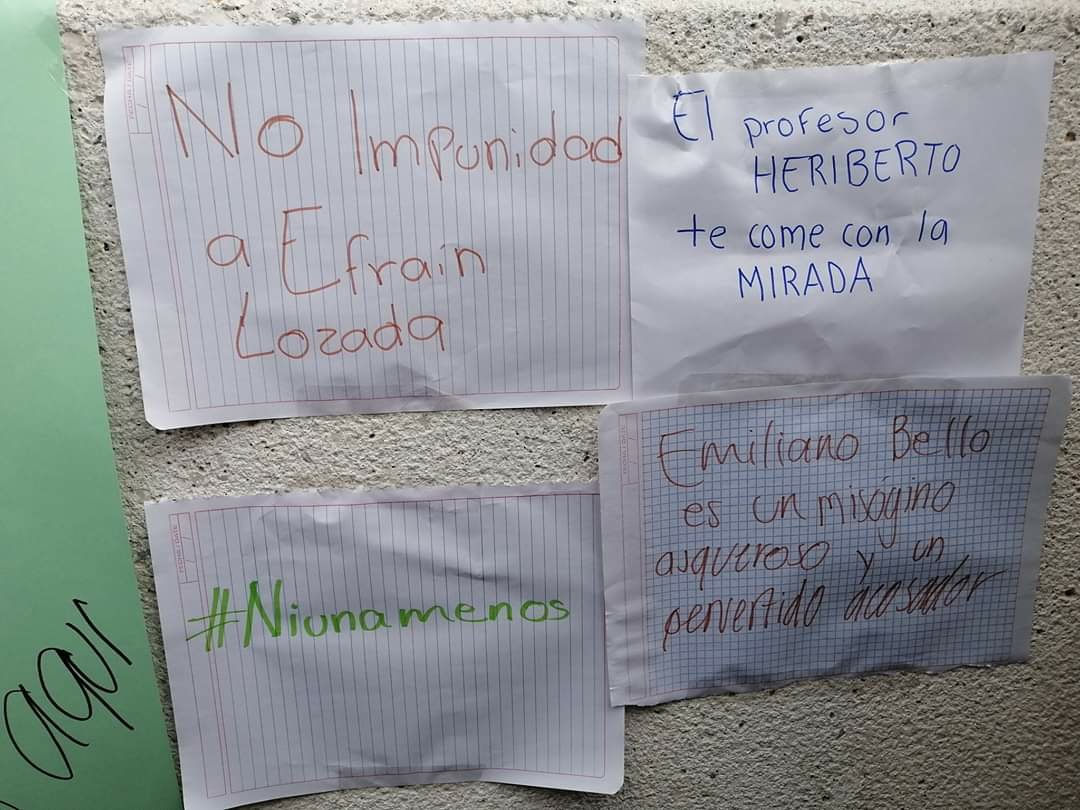 No Impunidad
a Efrain
Lozada
El profesor
HERIBERTO
te come con la
MIRADA
#Niunamenos
Emiliano Bello
es un misógino
asqueroso y un
pervertido acosador
aqui